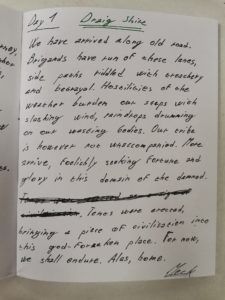 Day 1 Draig Shire
We have arrived along old road.
Brigands have run of these lanes,
side paths riddled with treachery
and betrayal. Hostilities of the
weather burden our steps with
slashing wind, raindrops drumming
on our wasting bodies. Our tribe
is however not unaccompanied. More
arrive, feebly seeking fortune and
glory in this domain of the damned.
Tents were erected,
bringing a piece of civilization into
this god-forsaken place. For now,
we shall endure. Alas, home.